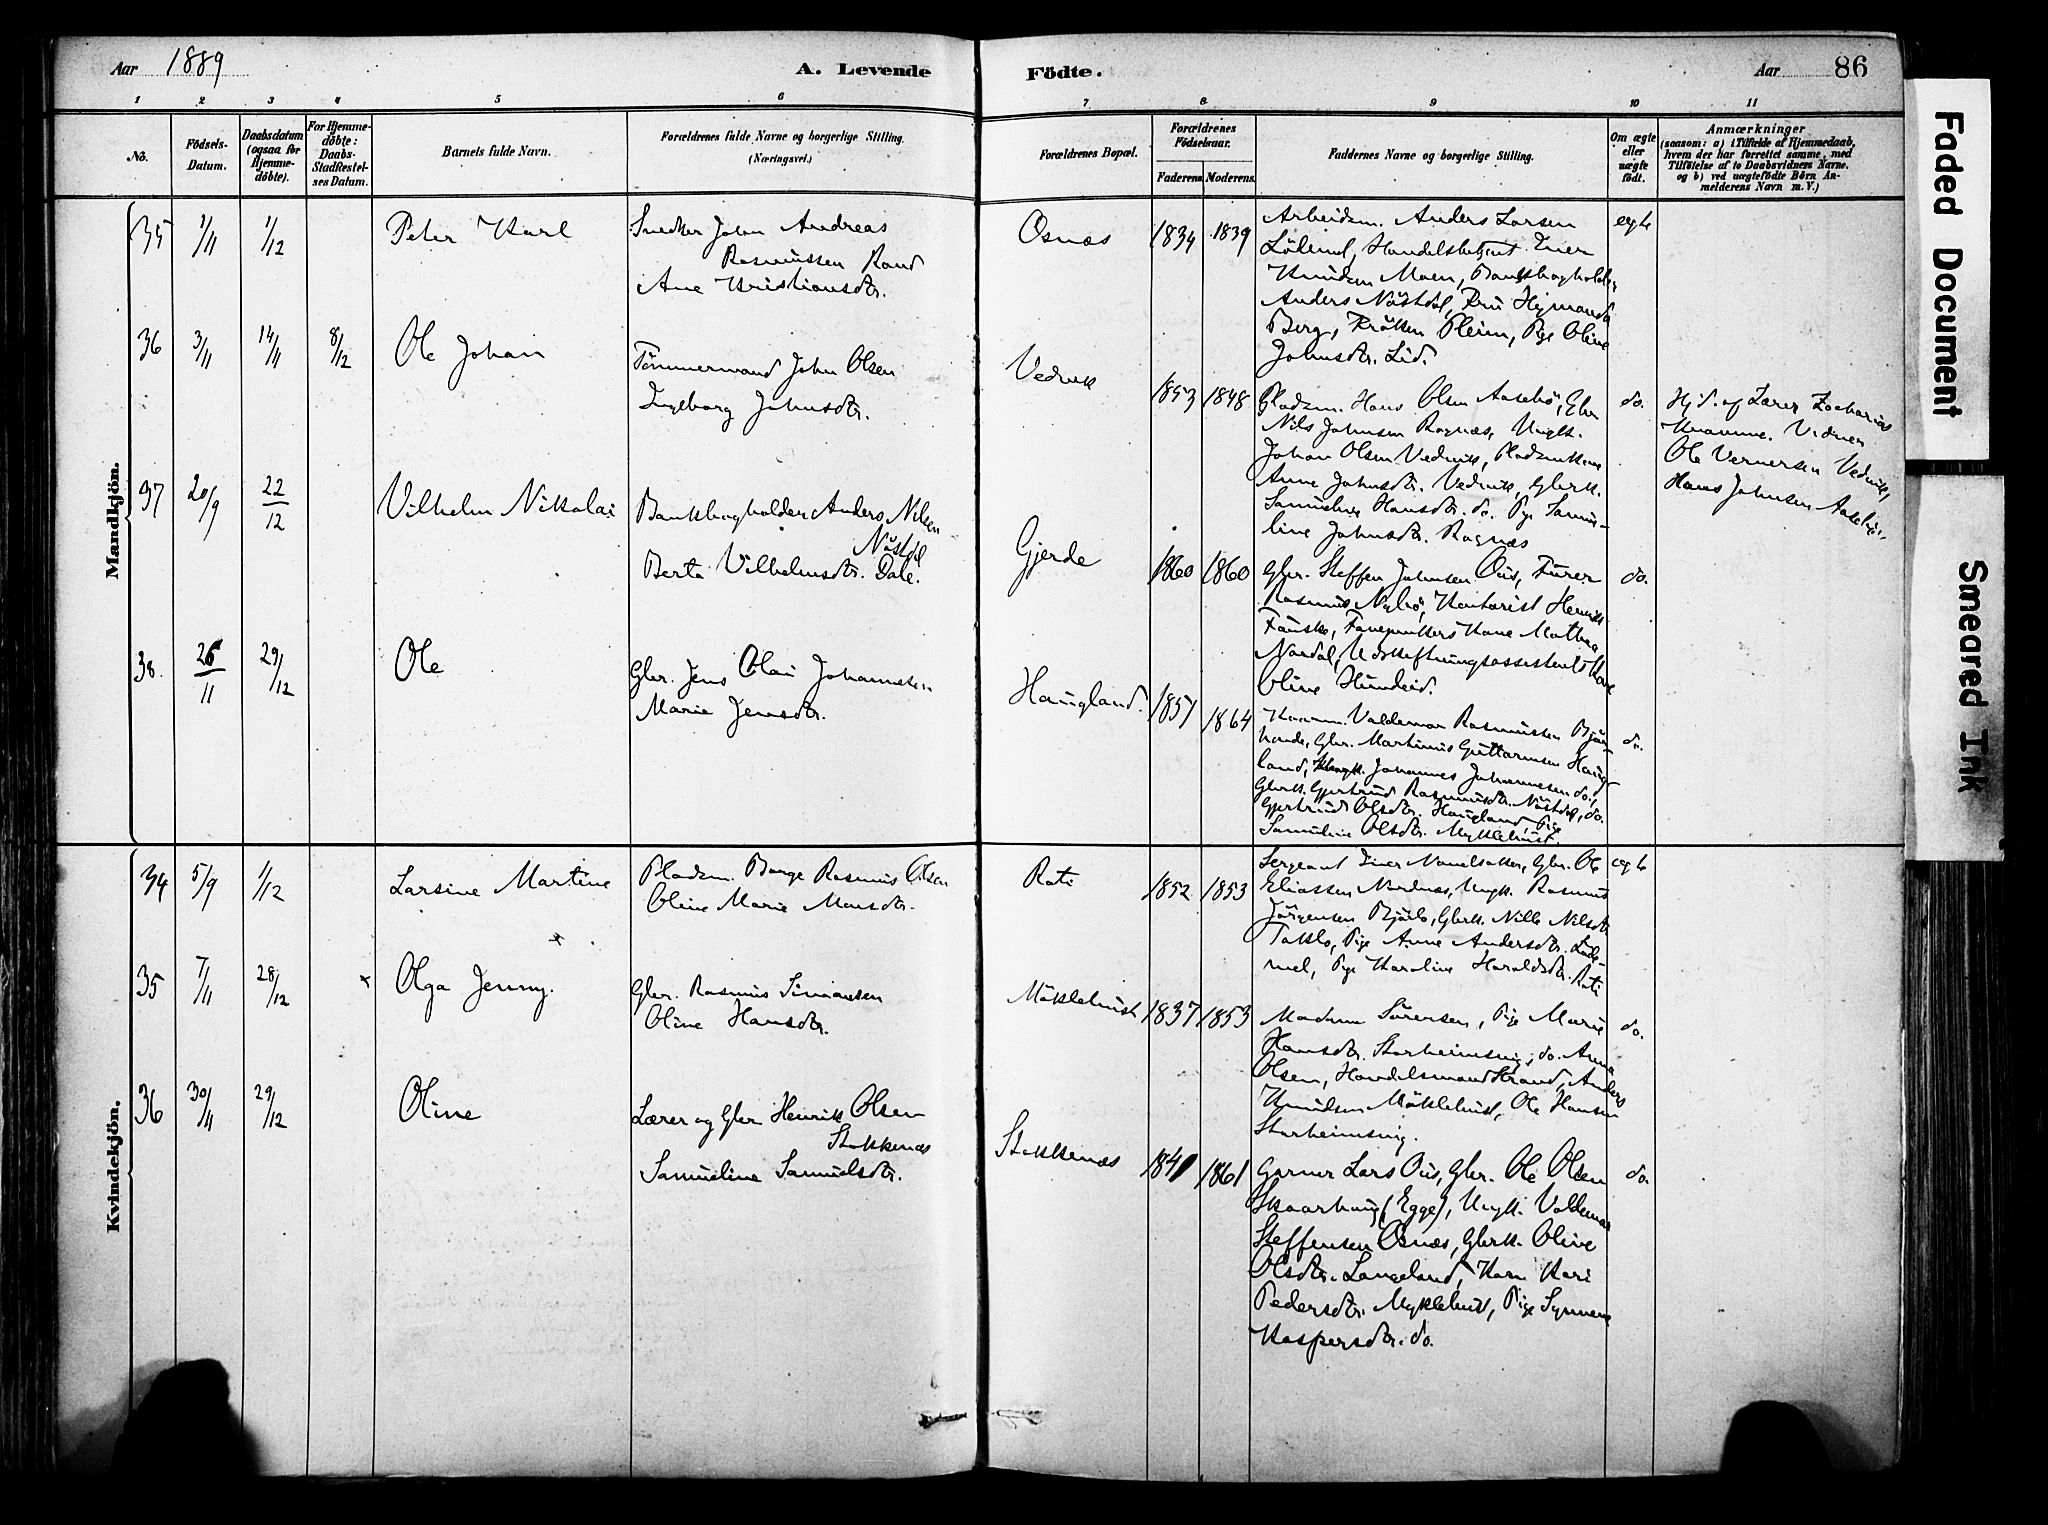 Aar 1889
A. Levende
Födte.
Aar
86
1 2 3 4 5 6 7 8 9 10 11
No.
Födsels-
Datum.
Daabsdatum
(ogsaa for
Hjemme-
döbte).
For Hjemme-
döbte:
Daabs-
Stadfæstel-
ses Datum.
Barnets fulde Navn.
Forældrenes fulde Navne og borgerlige Stilling.
(Næringsvei.)
Forældrenes Bopæl.
Forældrenes
Födselsaar.
Faderens. Moderens.
Faddernes Navne og borgerlige Stilling.
Om ægte
eller
uægte
født.
Anmærkninger
(saasom: a) i Tilfælde af Hjemmedaab,
hvem der har forrettet samme, med
Tilföielse af to Daabsvidners Navne.
og b) ved uægtefödte Börn An-
melderens Navn m. V.)
Mandkjön.
35 1/11 1/12 Peter Karl
Snedker Johan Andreas
Rasmussen Rand
Ane Kristiansdtr.
Osnæs 1834 1839
Arbeidsm. Anders Larsen
Handelsbetjent Iver
Knudsen Moen, Bankbogholder
Anders Nöstdal, Fru
Berg, Fröken Pleim, Pige Oline
Johnsdtr. Lid.
egte
36 3/11 14/11 8/12 Ole Johan
Tömmermand John Olsen
Ingeborg Johnsdtr.
Vedvik 1853 1848
Pladsm. Hans Olsen Aasebö, Gbr.
Nils Johnsen Ragnæs, Ungk.
Johan Olsen Vedvik, Pladsmkone
Anne Johnsdtr. Vedvik, Gbrk.
Samueline Hansdtr. do. Pige Samue-
line Johnsdtr. Ragnæs
do.
Hjd. af Lærer Zacharias
Kvamme. Vidner
Ole Vernersen Vedvik,
Hans Johnsen Aasebö
37 20/9 22/12 Vilhelm Nikolai
Bankbogholder Anders Nilsen
Nöstdal
Berta Vilhelmsdtr. Dale.
Gjerde 1860 1860
Gbr. Steffen Johnsen Ous, Furer
Rasmus Nybö, Kontorist Henrik
Fauske, Kone Mathea
Nordal, Udskiftningsassistents Kone
Oline Hundeid.
do.
38. 26/11 29/12 Ole
Gbr. Jens Olai Johannesen
Marie Jensdtr.
Haugland. 1857 1864
Valdemar Rasmussen
Gbr. Martinus Guttormsen Haug-
land, Ungk. Johannes Johannesen do.,
Gbrk. Gjertrud Rasmusdtr. Nöstdal, do.
Gjertrud Olsdtr. Haugland, Pige
Samueline Olsdtr. Myklebust.
do.
Kvindekjön.
34 5/9 1/12 Larsine Martine
Pladsm. Börge Rasmus Olsen
Oline Marie Monsdtr.
Roti 1852 1853
Sergeant Iver Gbr. Ole
Eliassen Nordnæs, Ungk. Rasmus
Jörgensen Björlo, Gbrk. Nille Nilsdtr.
Taklo, Pige Anne Andersdtr. Lade-
mel, Pige Karoline Haraldsdtr. Roti
egte
35 7/11 28/12 × Olga Jenny.
Gbr. Rasmus Simonsen
Oline Hansdtr.
Möklebust 1837 1853
Madam Sörensen, Pige Marie
Hansdtr. Storheimsvig, do. Anna
Olsen, Handelsmand Strand, Anders
Knudsen Möklebust, Ole Hansen
Storheimsvig.
do.
36 30/11 29/12 Oline
Lærer og Gbr Henrik Olsen
Stokkenæs
Samueline Samuelsdtr.
Stokkenæs 1841 1861
Garver Lars Ous, Gbr. Ole Olsen
Skaarhaug (Egge), Ungk. Valdemar
Steffensen Osnæs, Gbrk. Oline
Olsdtr. Langeland, Kone Kari
Pedersdtr. Myklebust, Pige Synneve
Kaspersdtr. do.
do.
Faded Document
Smeared Ink